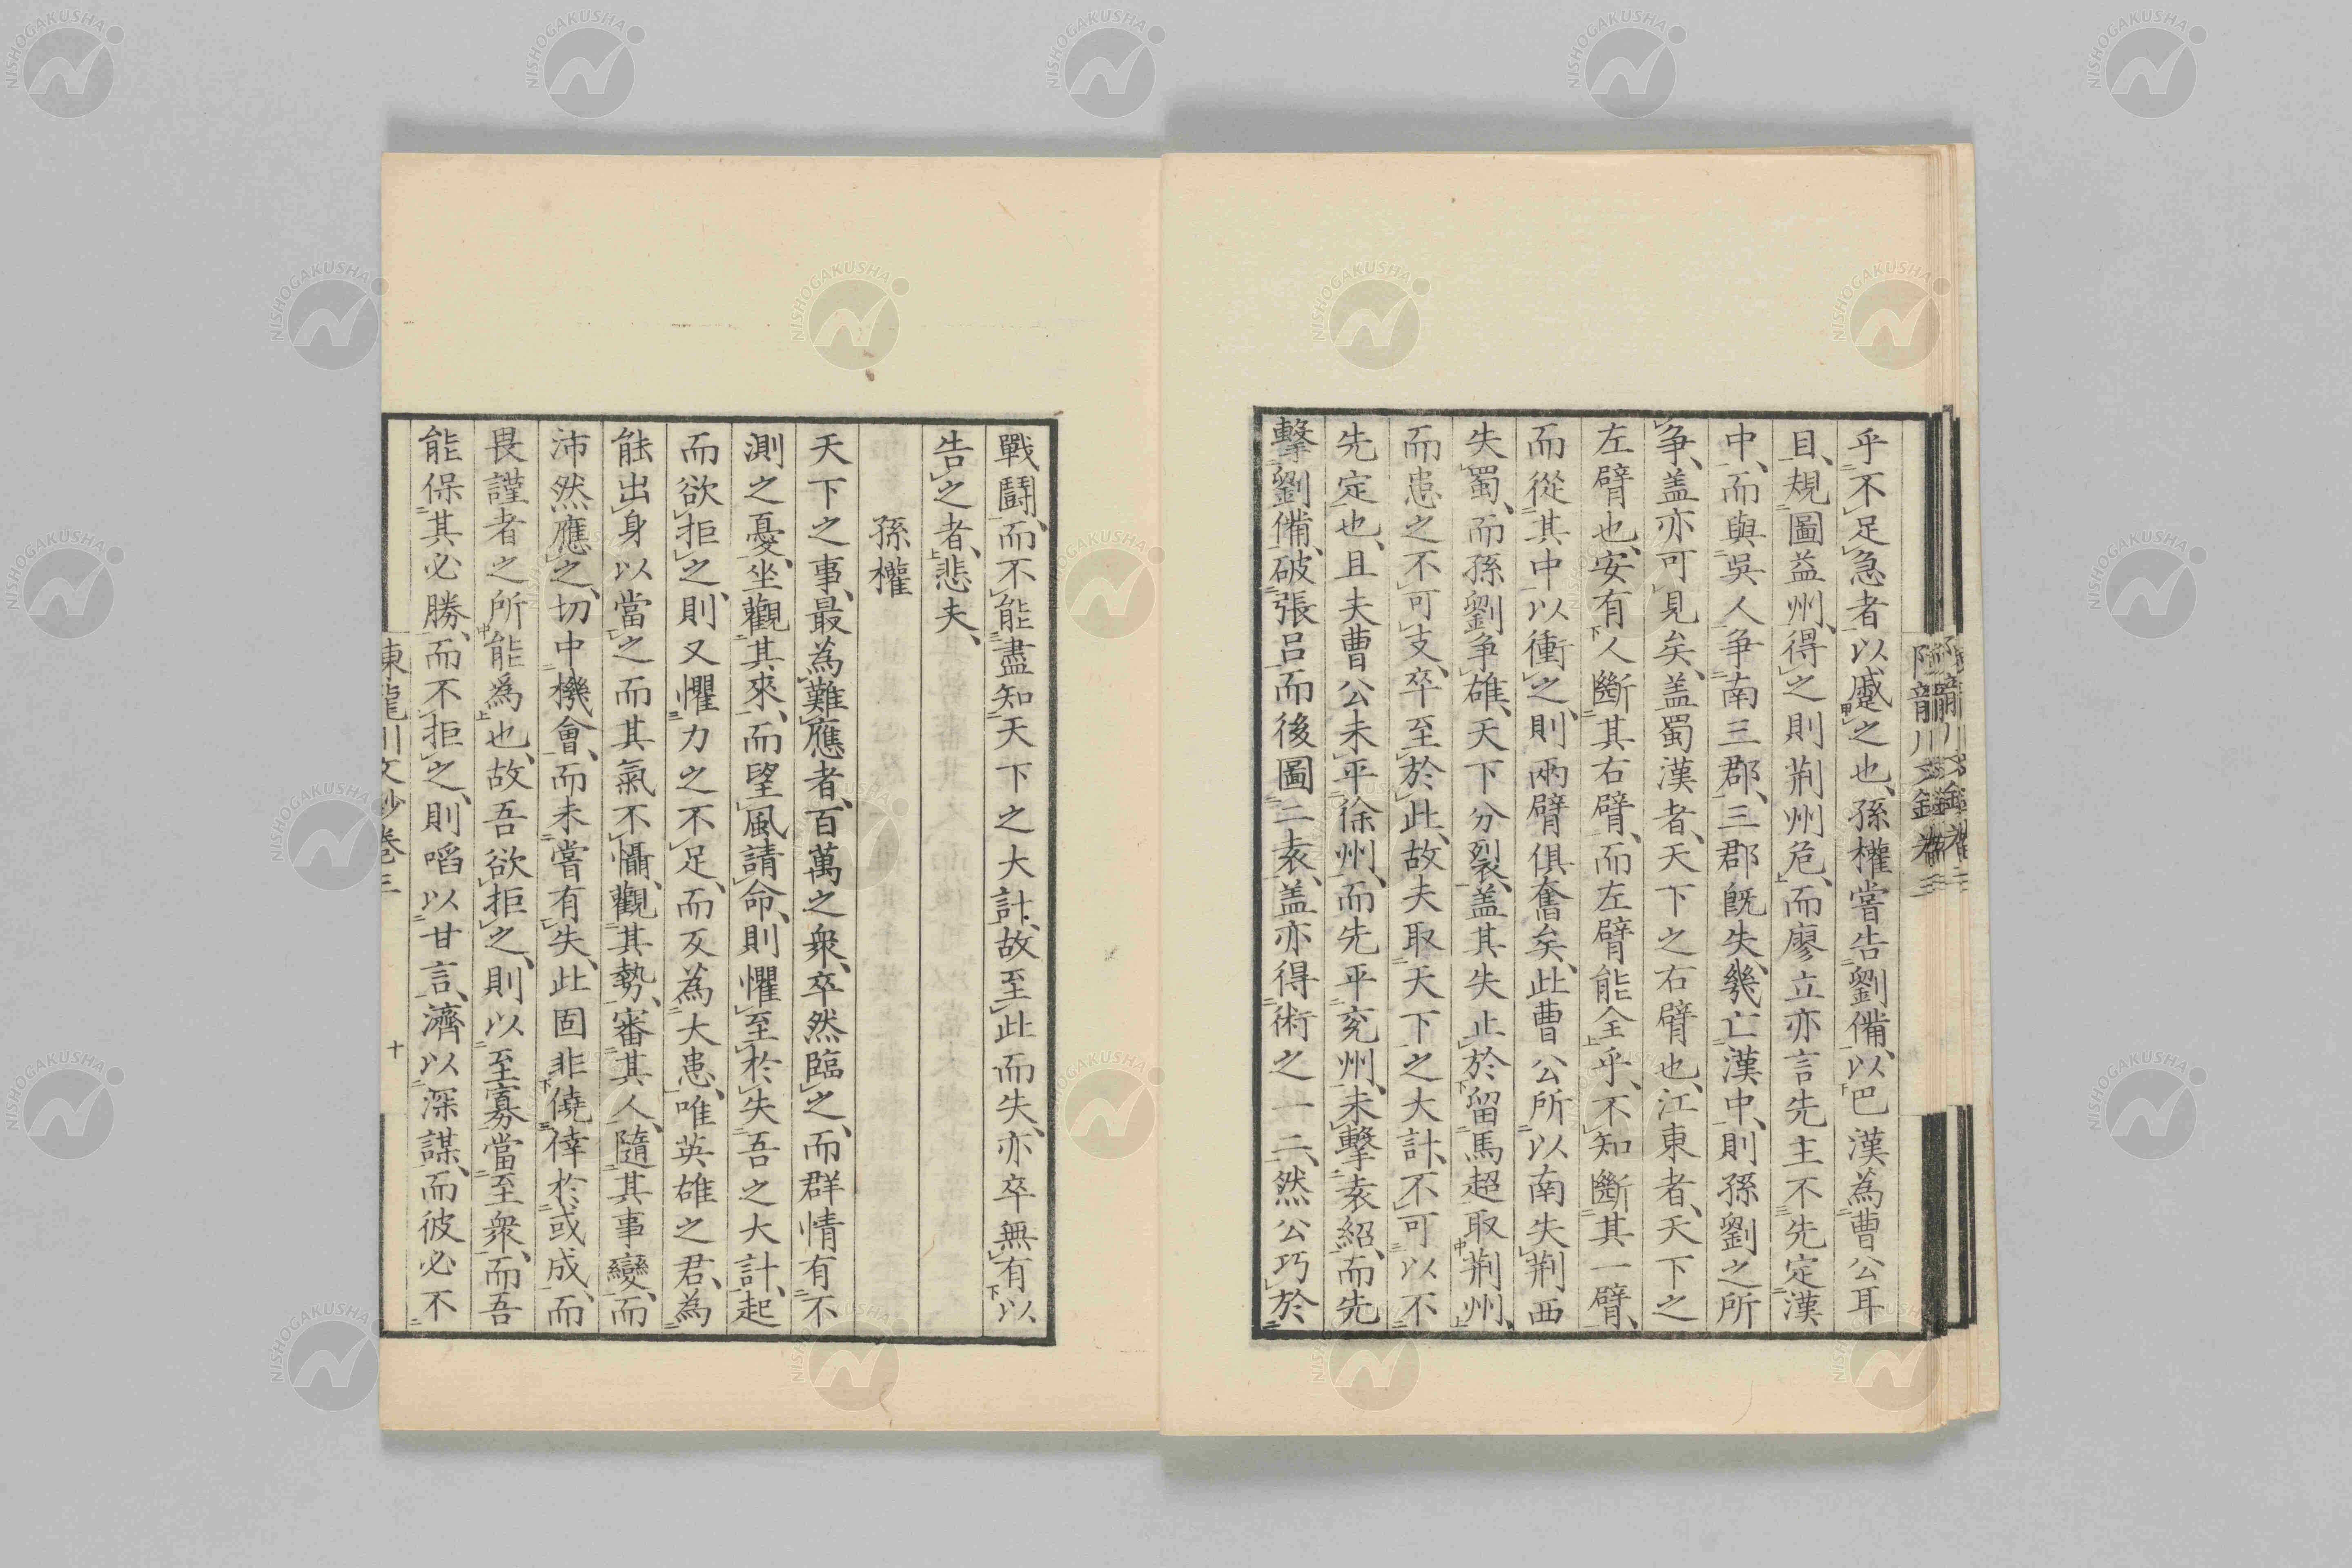 乎、不足急者以蹙之也、孫權嘗告劉備、以巴漢為曹公耳
目、規圖益州、得之則荆州危、而廖立亦言先主不先定漢
中、而與吳人争南三郡、三郡既失、幾亡漢中、則孫劉之所
争、盖亦可見矣、盖蜀漢者、天下之右臂也、江東者、天下之
左臂也、安有人斷其右臂、而左臂能全乎、不知斷其一臂、
而從其中以衝之、則兩臂俱奮矣、此曹公所以南失荆西
失蜀、而孫劉争雄、天下分裂、盖其失止於留馬超取荆州、
而患之不可支、卒至於此、故夫取天下之大計、不可以不
先定也、且夫曹公未平徐州、而先平兖州、未擊袁紹、而先
擊劉備、破張呂而後圖二袁、盖亦得術之一二、然公巧於
戰鬭、而不能盡知天下之大計、故至此而失、亦卒無有以
告之者、悲夫、
孫權
天下之事、最為難應者、百萬之衆、卒然臨之、而群情有不
測之憂、坐觀其來、而望風請命、則懼至於失吾之大計、起
而欲拒之、則又懼力之不足、而反為大患、唯英雄之君、為
能出身以當之而其氣不懾、觀其勢、審其人、隨其事變、而
沛然應之、切中機會、而未嘗有失、此固非僥倖於或成、而
畏謹者之所能為也、故吾欲拒之、則以至寡當至衆、而吾
能保其必勝、而不拒之、則啗以甘言、濟以深謀、而彼必不
陳龍川文鈔卷三
十